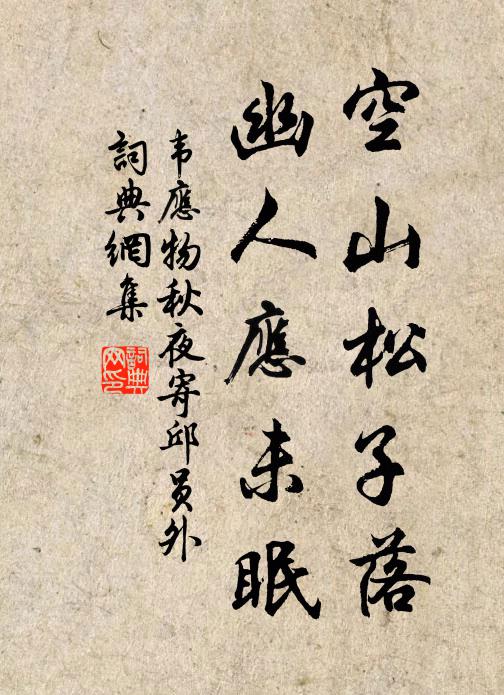 空山松子落
幽人應未眠
韦應物秋夜寄邱員外
詞典網集
詞典网印